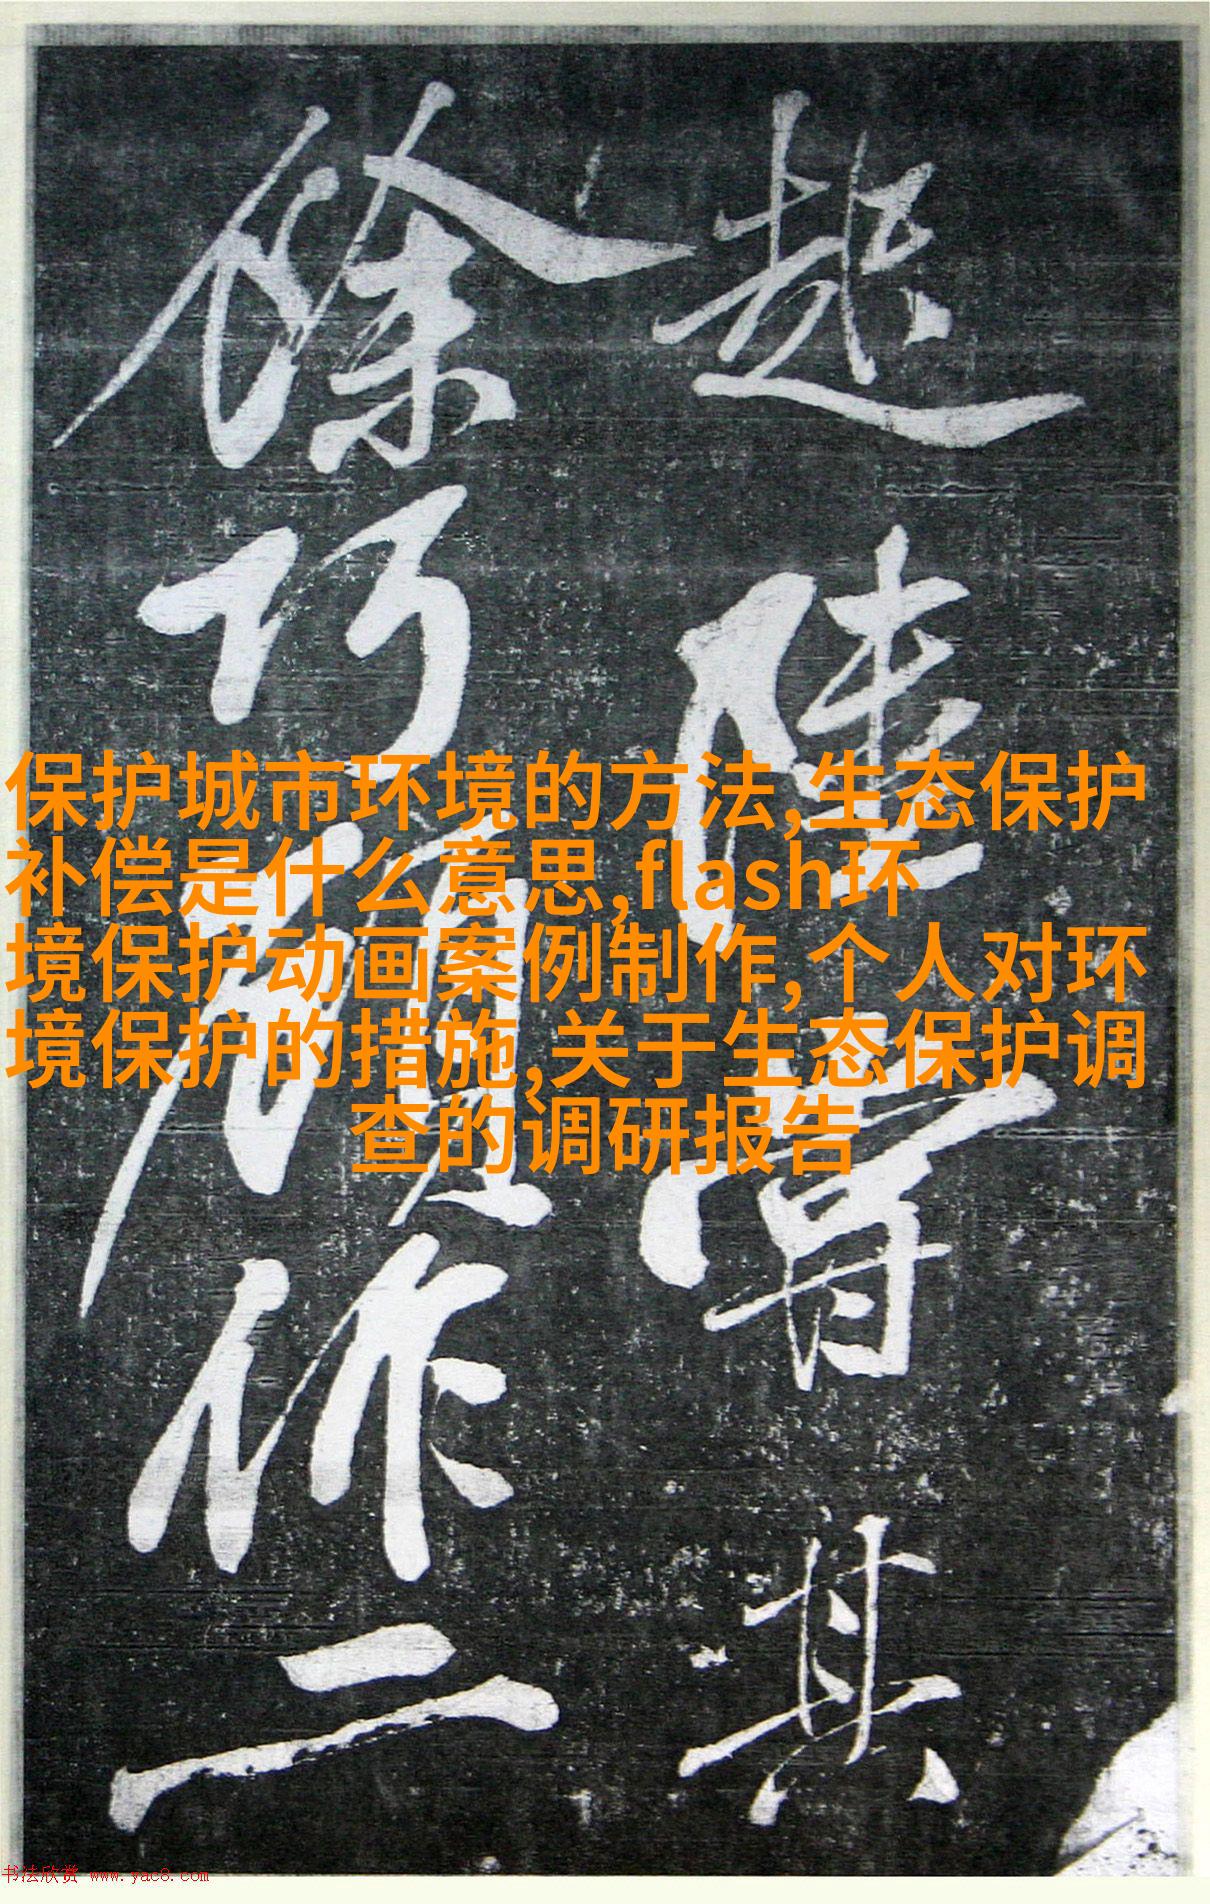 保护城市环境的方法,生态保护
补偿是什么意思,flash环
境保护动画案例制作,个人对环
境保护的措施,关于生态保护调
查的调研报告
趙
陸
其
徐
巧
作二
书法欣赏 www.yac8.com